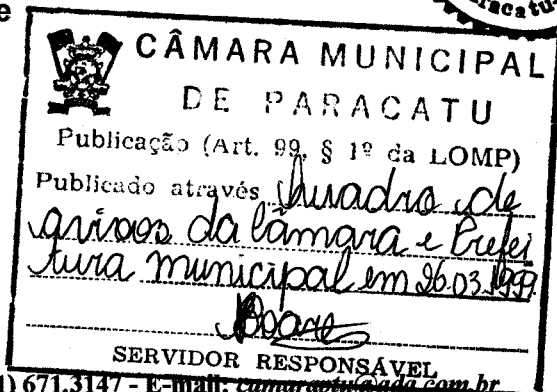 e
CÂMARA MUNICIPAL
DE PARACATU
Publicação (Art. 99, § 1º da LOMP)
Publicado através Quadro de
avisos da Câmara e Prefei
tura municipal em 26.03.1999
SERVIDOR RESPONSÁVEL
671.3147 - E-mail: